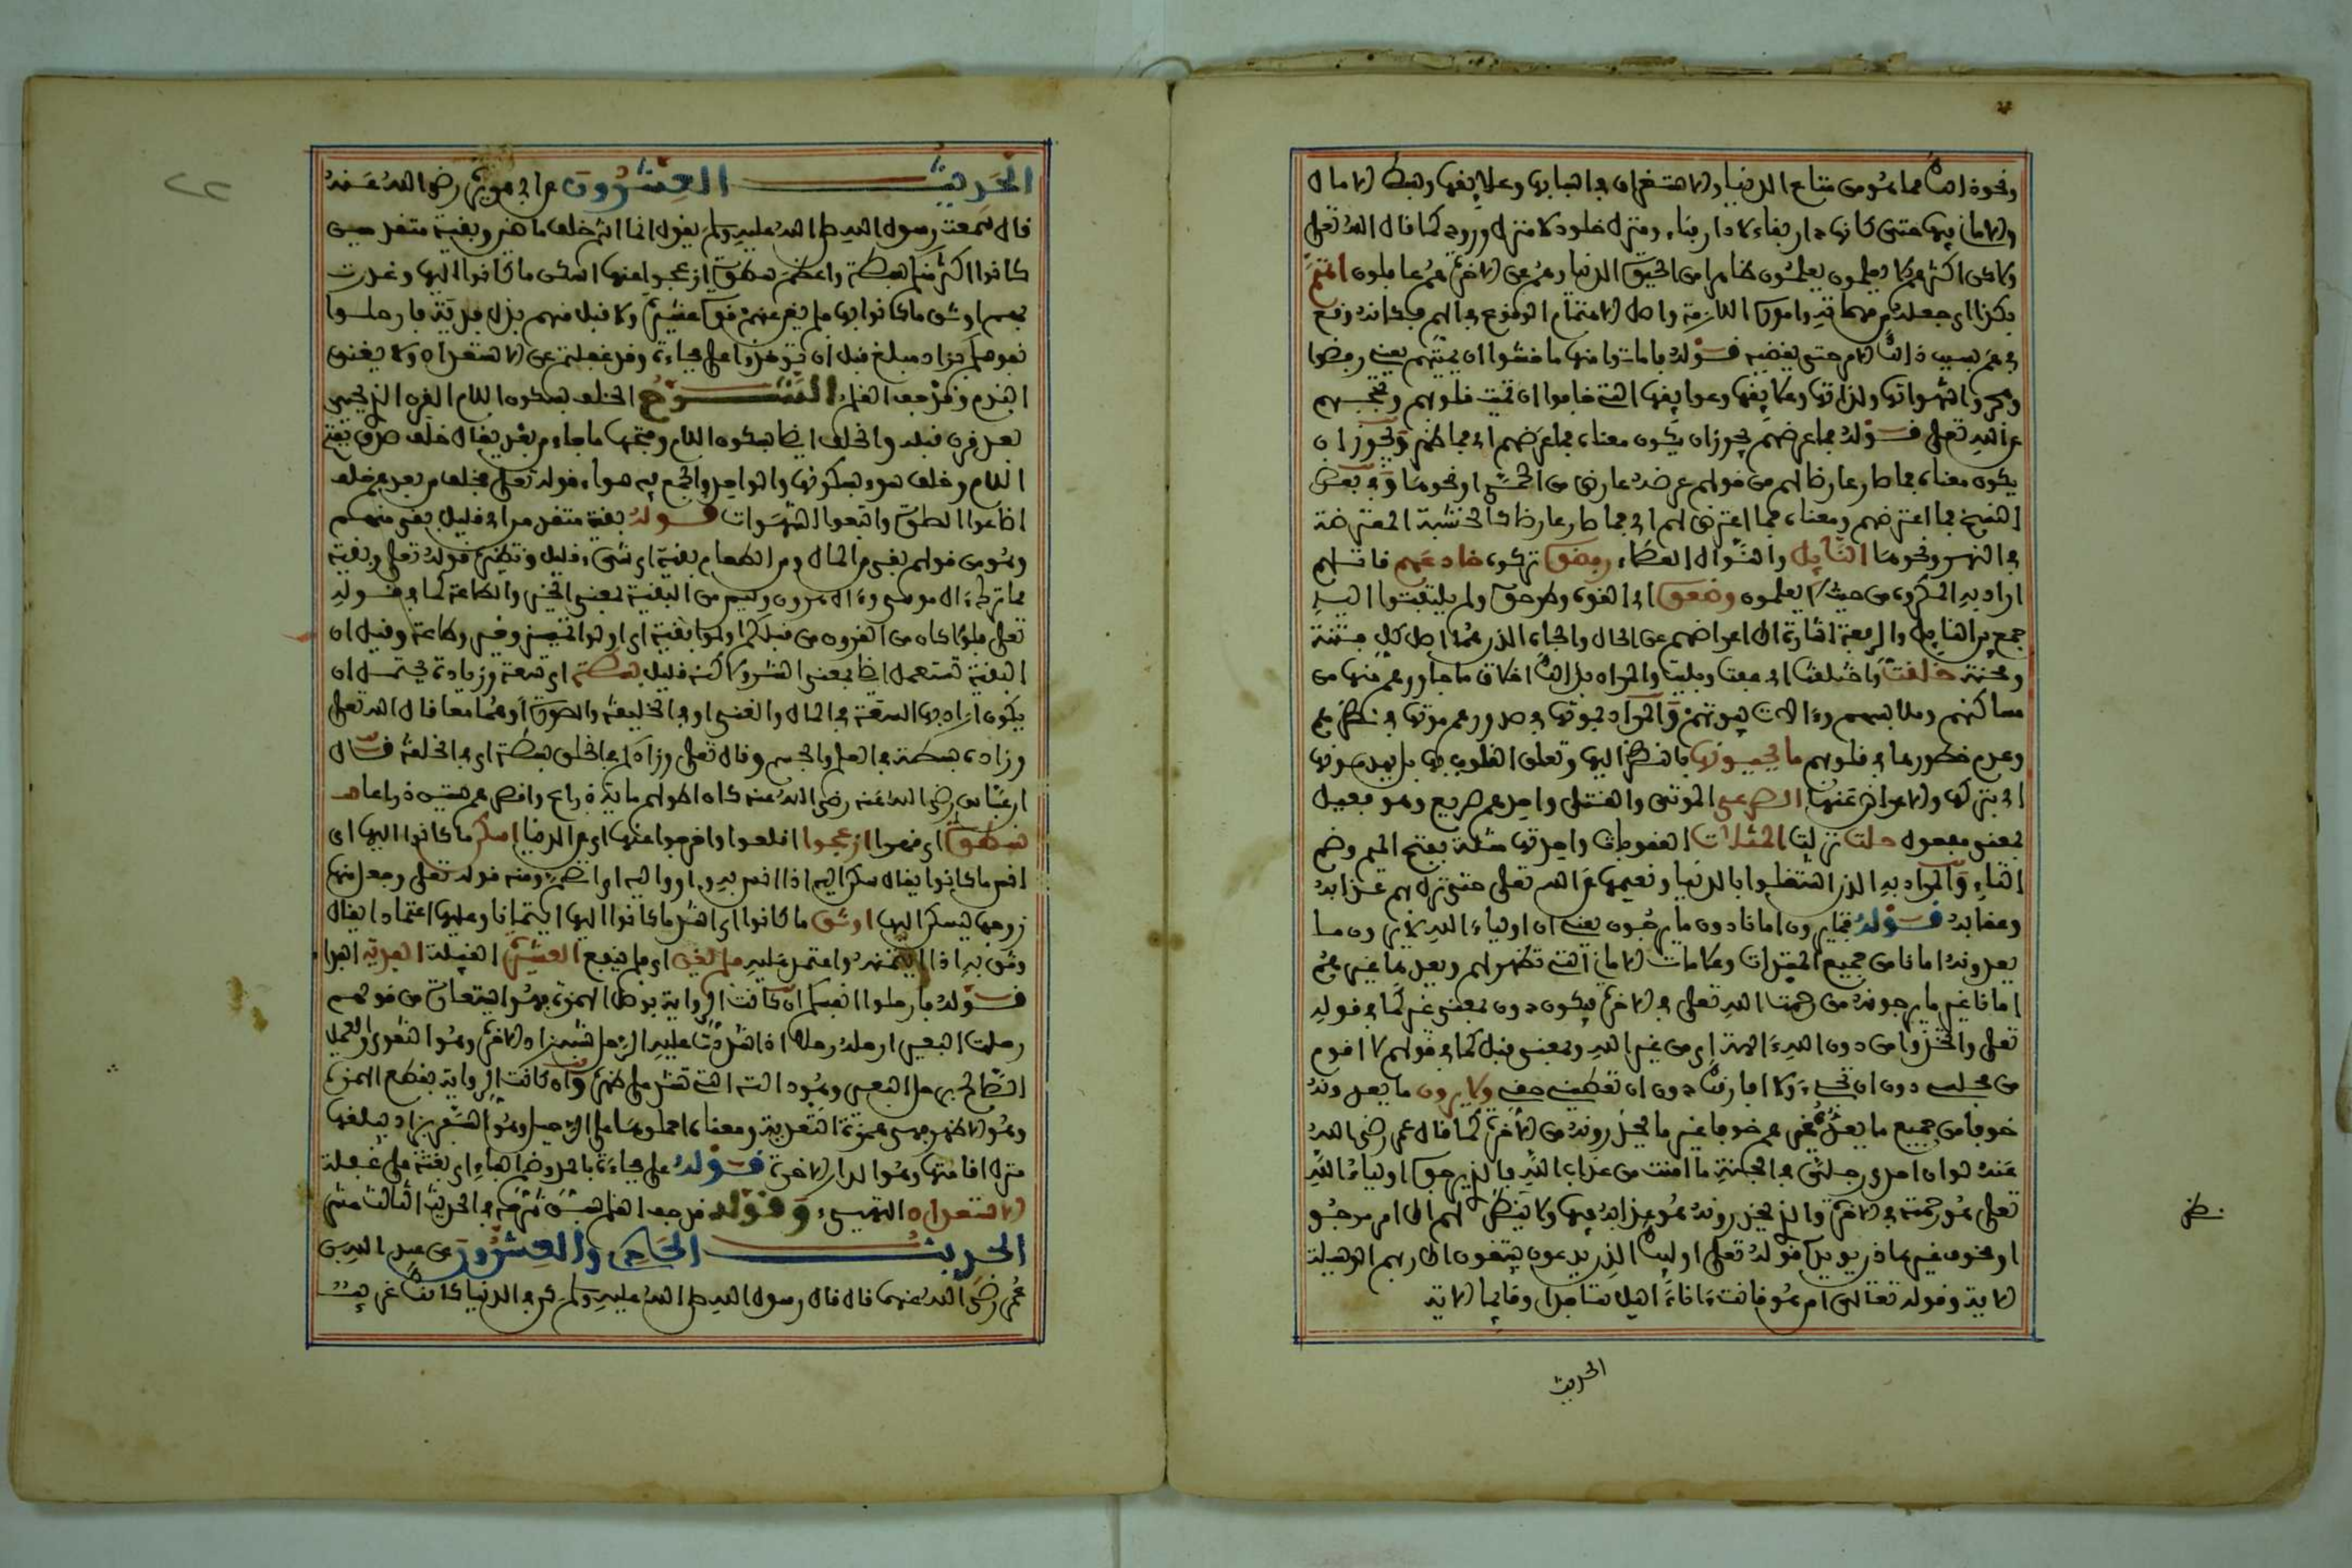 ونحوذ الك مما هو من متاع الدنيا والاستغراق في اسبابها وعلايقها وبسط الامال
والاماني فيها حتى كانها دار بقاء لا دار فناء ومنزل خلود لا منزل ورود كما قال الله تعلى
ولاكن اكثرهم لا يعلمون يعلمون ظاهرا من الحيوة الدنيا وهم عن الاخرة هم غافلون
بكذا اي جعله من مهماته وامور اللازمة واصل الاهتمام الوقوع في الهم
في هم بسبب ذلك الامر حتى يقضيه قوله فاماتوا منها ما خشوا ان يميتهم يعني رفضوا
وهجروا شهواتها ولذاتها وعلايقها وعوايقها التي خافوا ان تميت قلوبهم وتحجبهم
عن الله تعلى قوله فما عرضهم يجوز ان يكون معناه فما عرضهم اي فما ويجوز ان
يكون معناه فما صار عارضا لهم من قولهم عرضه عارض من الحمى او نحوها وفي بعض
النسخ فما اعترضهم ومعناه فما اعترض لهم اي فما صار عارضا كالخشبة المعترضة
في النهر ونحوها النايل والنوال العطاء رفضوه تركوه خادعهم قاتلهم
اراد به المكروه من حيث لا يعلمون وضعوه اي القوه وطرحوه ولم يلتفتوا اليه
جمع بين النايل والرفعة اشارة الى اعراضهم عن المال والجاه الذين هما اصل كل فتنة
ومحنة خلقت واخلقت اي عفت وبليت والمراد بذالك اخلاق ما جاوروهم منها من
مساكنهم وملابسهم والات بيوتهم والمراد بموتها في صدورهم موتها في نظرهم
وعدم خطورها في قلوبهم ما يحيونها بالنظر اليها وتعلق القلوب بها بل يهدمونها
اي بتركها والاعراض عنها الصرعى الموتى والقتلى واحدهم صريع وهو فعيل
بمعنى مفعول حلت نزلت المثلات العقوبات واحدتها مثلة بفتح الميم وضم
الثاء والمراد به الذين اشتغلوا بالدنيا ونعيمها عن الله تعلى حتى نزل بهم عذابه
وعقابه قوله فما يرون امانا دون ما يرجون يعني ان اولياء الله لا يرون ما
يعدونه امانا من جميع المبشرات وعلامات الامان التي تظهر لهم ويعدها غيرهم
امانا غير ما يرجونه من رحمة الله تعلى في الاخرة فيكون دون بمعنى غير كما في قوله
تعلى واتخذوا من دون الله الهة اي من غير الله وبمعنى قبل كما في قولهم لا اقوم
من مجلسي دون ان تجيء ولا افارقك دون ان تعطيني حقي ولا يرون ما يعدونه
خوفا من جميع ما يعده غيرهم خوفا غير ما يحذرونه من الاخرة كما قال عمر رضي الله
عنه لو ان احدى رجلي في الجنة ما امنت من عذاب الله فالذي يرجوه اولياء الله
تعلى هو رحمته في الاخرة والذي يحذرونه هو عذابه فيها ولا ينظر لهم الى امر مرجو
او مخوف غيرهما ذين ويويده قوله تعلى اوليك الذين يدعون يبتغون الى ربهم الوسيلة
الاية وقوله تعالى ام هو قانت ءاناء اليل ساجدا وقايما الاية
الحديث
الحديث العشرون عن ابي هريرة رضي الله عنه
قال سمعت رسول الله صلى الله عليه وسلم يقول انما انتم خلف ماضين وبقية متقدمين
كانوا اكثر منكم بسطة واعظم سطوة ازعجوا عنها اسكن ما كانوا اليها وغدرت
بهم اوثق ما كانوا بها فلم تغن عنهم قوة عشيرة ولا قبل منهم بذل فدية فارحلوا
نفوسكم بزاد مبلغ قبل ان تؤخذوا على فجاءة وقد غفلتم عن الاستعداد ولا يغني
الندم وقد جف القلم الشرح الخلف بسكون اللام القرن الذي يجيء
بعد قرن قبله والخلف ايضا بسكون اللام وفتحها ما جاء من بعد يقال خلف صدق بفتح
اللام وخلف سوء بسكونها والواحد والجمع فيه سواء قوله تعلى فخلف من بعدهم خلف
اضاعوا الصلوة واتبعوا الشهوات قوله بقية متقدمين اي قليل بقي منهم
وهو من قولهم بقي من المال ومن الطعام بقية اي شيء قليل ونظيره قوله تعلى وبقية
مما ترك ءال موسى وءال هرون وليس من البقية بمعنى الخير والطاعة كما في قوله
تعلى فلولا كان من القرون من قبلكم اولوا بقية اي اولوا تمييز وخير وطاعة وقيل ان
البقية تستعمل ايضا بمعنى الشر ولاكنه قليل بسطة اي سعة وزيادة يحتمل ان
يكون اراد بها السعة في المال والغنى او في الخليفة والصورة او هما معا قال الله تعلى
وزاده بسطة في العلم والجسم وقال تعلى وزادكم في الخلق بسطة اي في الخلقة قال
ابن عباس رضي الله عنه رضي الله عنه كان اطولهم ماية ذراع واقصرهم ستين ذراعا
سطوة اي قهرا ازعجوا اقلعوا واخرجوا عنها اي من الدنيا اسكن ما كانوا اليها اي
اقر ما كانوا يقال سكن اليه اذا انس به واوى اليه واطمئن ومنه قوله تعلى وجعل منها
زوجها ليسكن اليها اوثق ما كانوا اي اشد ما كانوا اليها ايتمانا وعليها اعتمادا يقال
وثق به اذا ايتمنه واعتمد عليه فلم تغن اي فلم ينفع العشيرة القبيلة الفدية الفدا
قوله فارحلوا انفسكم ان كانت الرواية بوصل الهمزة فهو استعارة من قولهم
رحلت البعير ارحله رحلا اذا شددت عليه الرحل شبه زاد الاخرة وهو التقوى والعمل
الصالح برحل البعير وهو الته التي تشد على ظهره وان كانت الرواية بقطع الهمزة
وهو الاظهر فهي همزة التعدية ومعناه احملوها على الرحيل وهو السفر بزاد يبلغها
منزل اقامتها وهو الدار الاخرة قوله على فجاءة بالمد وضم الفاء اي بغتة على غفلة
الاستعداد التهيئ وقوله قد جف القلم سبق شرحه في الحديث الثالث عشر
الحديث الحادي والعشرون عن عبد الله بن
عمر رضي الله عنهما قال قال رسول الله صلى الله عليه وسلم كن في الدنيا كانك غريب